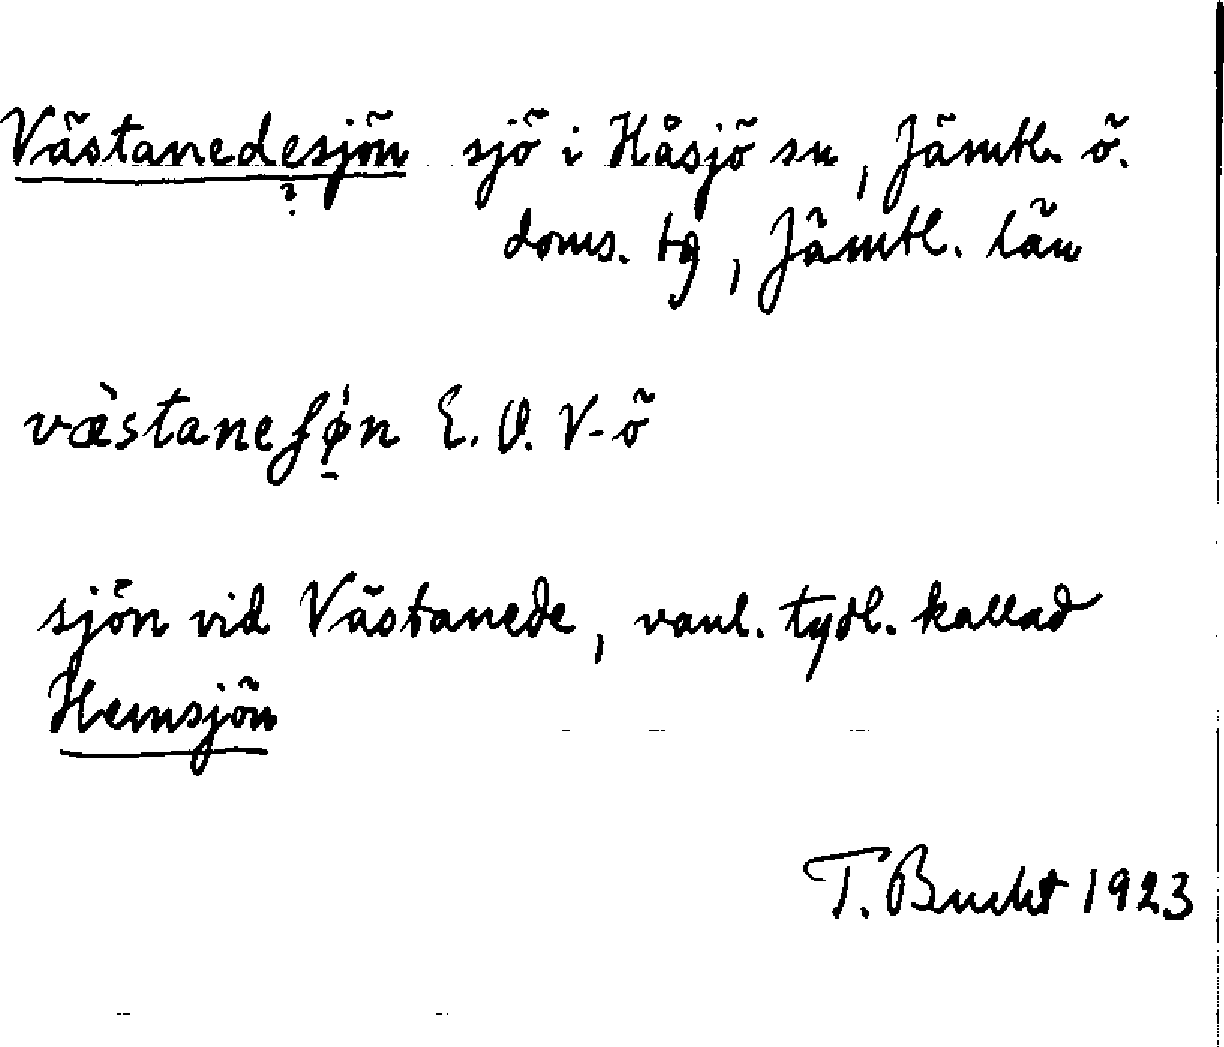 Västanedesjön sjö i Håsjö sn, Jämtl. ö.
?
doms. tg, Jämtl. län
væ̀staneʃǿ̠n E. O. V-ö
sjön vid Västanede, vanl. tydl. kallad
Hemsjön
T. Bucht 1923